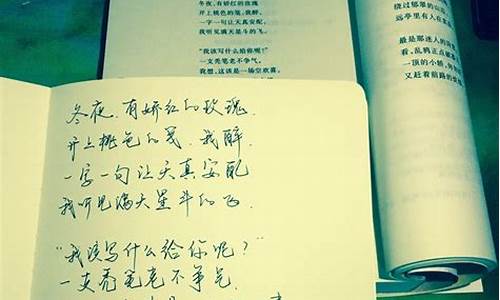 冬夜,有娇红的玫瑰
开上桃色的笺,我醉,
一字一句让天真安配,
我听见满天星斗的飞。
“我该写什么给你呢?”
一支秃笔老不争气,
我想,这该是一场空欢喜。
绕过郁翠的山
远亭里有人在
最是那迷人的
看,乱鸦正点破
一顶的小轿,
又赶着前路的
冬夜,有娇红的玫瑰,
开上桃色的笺,我醉,
一字一句让天真安配
我听见满天星斗的飞
“我该写什么给你呢?”
一支秃笔老不争气